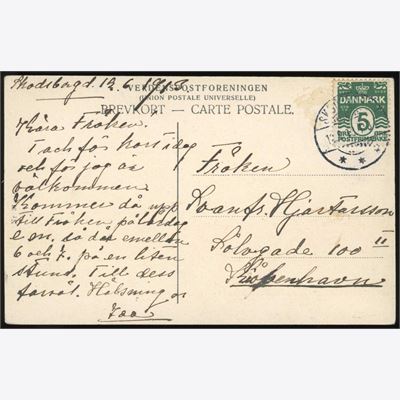 Skodsborg d. 12.6.1913
VERDENSPOSTFORENINGEN
(UNION POSTALE UNIVERSELLE)
BREVKORT - CARTE POSTALE.
Kära Fröken.
Tack för kort idag
och för jag är
välkommen
Kommer då upp
till Fröken på lördag
e m. så där emellan
6 och 7. på en liten
stund. Till dess
farväl. Hälsningar
DANMARK
5
ØRE ØRE
POSTFRIMÆRKE
Fröken
Svanfr. Hjartarsson
Sölvgade 100 II
Köpenhavn